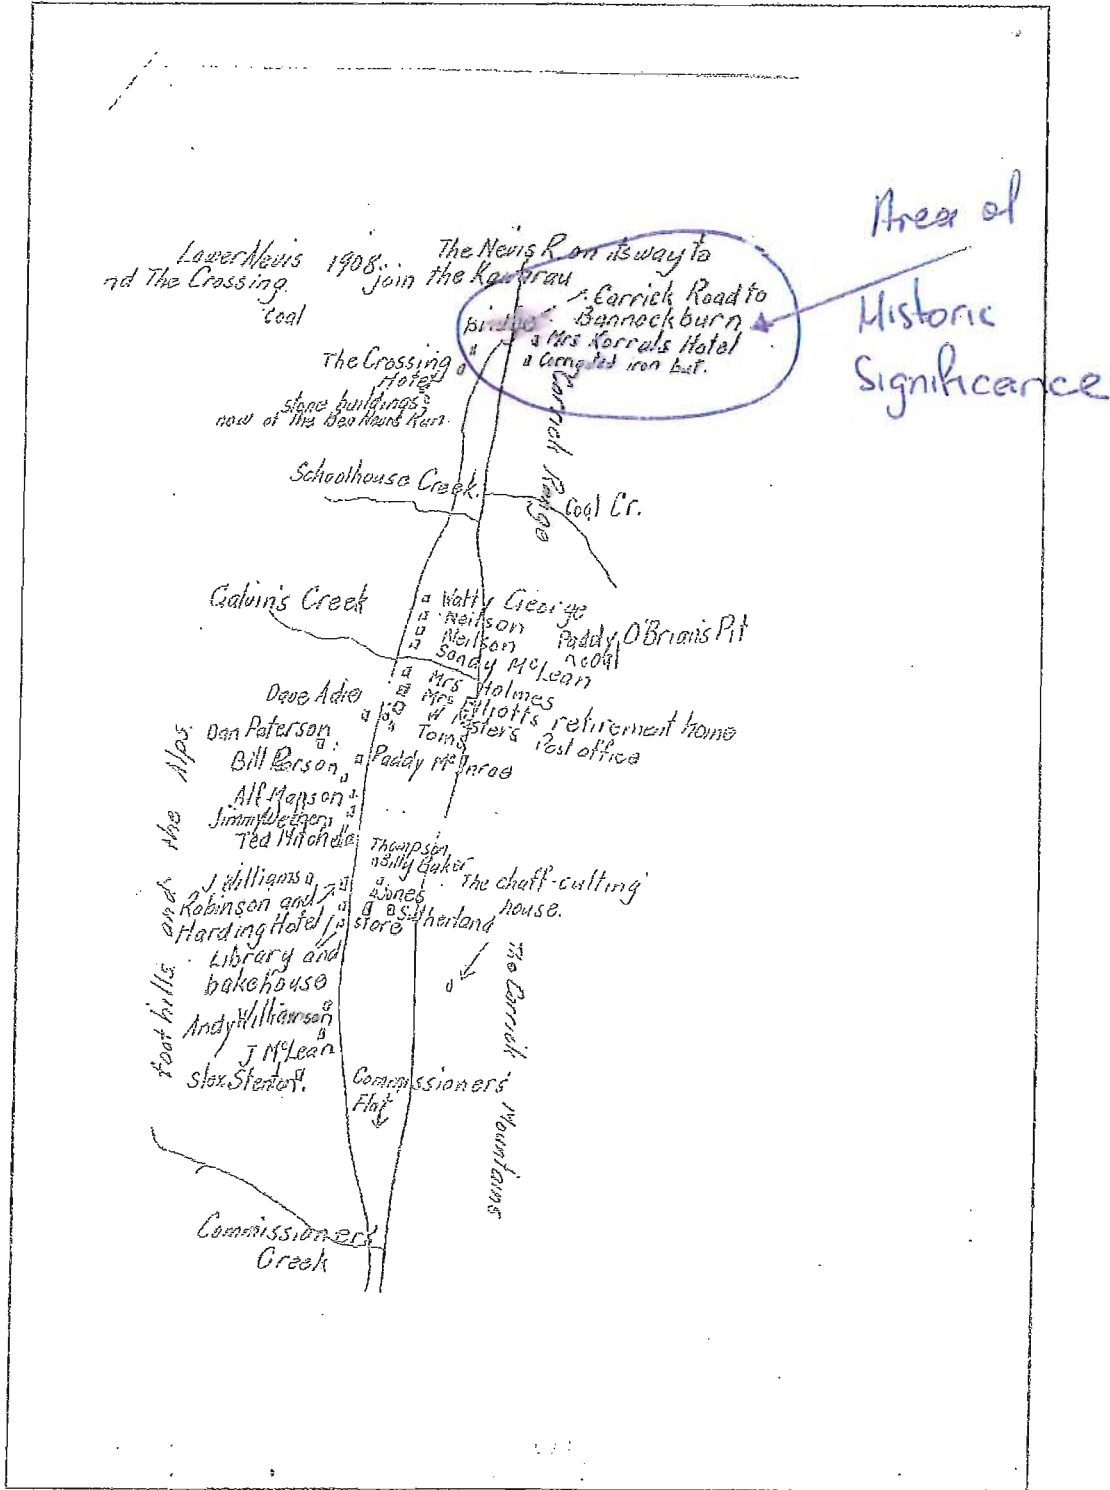 Lower Nevis 1908.
nd The Crossing.
Coal
The Nevis R. on its way to
join the Kawarau
Carrick Road to
Bannockburn
Bridge
Mrs Korruls Hotel
Corrugated iron but.
Area of
Historic
Significance
The Crossing
Hotel
stone buildings
now of the Ben Nevis Run.
Carrick Range
Schoolhouse Creek.
Coal Cr.
Galvin's Creek
Watty George
Neilson
Neilson
Paddy O'Brian's Pit
coal
Sandy McLean
Mrs Holmes
Mrs Elliotts retirement home
W Masters Post office
Toms
Dave Adie
Dan Paterson
Bill Person
Paddy McInroe
Alf Mapson
Jimmy
Ted Mitchell
Thompson
Billy Baker
Jones
Sutherland
store
The chaff-cutting
house.
J Williams
Robinson and
Harding Hotel
Library and
bakehouse
Andy Williamson
J McLean
Stenton.
foot hills and the Alps.
The Carrick Mountains
Commissioners'
Flat
Commissioners
Creek